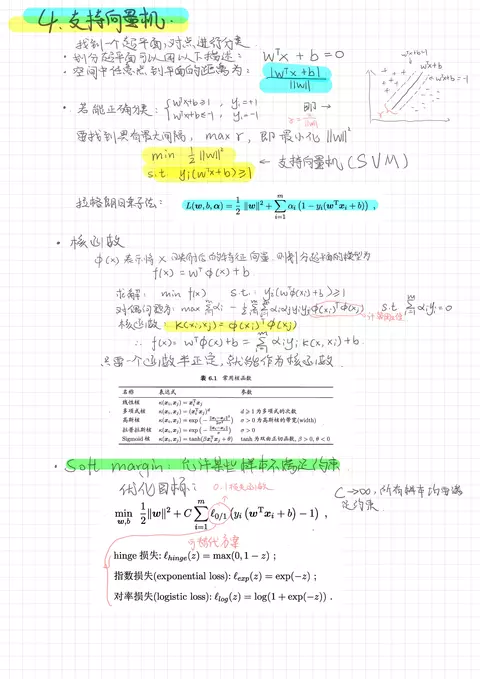 4. 支持向量机.
找到一个超平面,对点进行分类.
· 划分超平面可以用以下描述: wᵀx + b = 0
· 空间中任意点到平面的距离为: |wᵀx + b| / ||w||
wᵀx+b=1
wᵀx+b
wᵀx+b=-1
r
· 若能正确分类: { wᵀx+b≥1, yᵢ=+1
wᵀx+b≤-1, yᵢ=-1
即 →
r = 2/||w||
要找到具有最大间隔, max r, 即最小化 ||w||²
min ½||w||²
s.t. yᵢ(wᵀx+b)≥1
← 支持向量机(SVM)
拉格朗日乘子法: L(w, b, α) = 1/2 ||w||² + ∑ᵢ₌₁ᵐ αᵢ (1 − yᵢ(wᵀxᵢ + b)) ,
· 核函数
ϕ(x) 表示将 x 映射后的特征向量, 则划分超平面模型为
f(x) = wᵀϕ(x) + b
求解: min f(x) s.t. yᵢ(wᵀϕ(x)+b)≥1
核函数: κ(xᵢ,xⱼ) = ϕ(xᵢ)ᵀϕ(xⱼ)
∴ f(x) = wᵀϕ(x) + b = ∑ᵢ₌₁ᵐ αᵢyᵢ κ(x, xᵢ) + b.
只要一个函数半正定, 就能作为核函数.
表 6.1 常用核函数
名称 表达式 参数
线性核 κ(xᵢ, xⱼ) = xᵢᵀxⱼ
多项式核 κ(xᵢ, xⱼ) = (xᵢᵀxⱼ)ᵈ d ≥ 1 为多项式的次数
高斯核 κ(xᵢ, xⱼ) = exp(−||xᵢ−xⱼ||²/2σ²) σ > 0 为高斯核的带宽(width)
拉普拉斯核 κ(xᵢ, xⱼ) = exp(−||xᵢ−xⱼ||/σ) σ > 0
Sigmoid 核 κ(xᵢ, xⱼ) = tanh(βxᵢᵀxⱼ + θ) tanh 为双曲正切函数, β > 0, θ < 0
· Soft margin: 允许某些样本不满足约束
优化目标: 0.1损失函数
min w,b 1/2||w||² + C ∑ᵢ₌₁ᵐ ℓ₀/₁ (yᵢ (wᵀxᵢ + b) − 1) ,
C→∞, 所有样本均要满足约束.
可替代方案
hinge 损失: ℓhinge(z) = max(0, 1 − z) ;
指数损失(exponential loss): ℓexp(z) = exp(−z) ;
对率损失(logistic loss): ℓlog(z) = log(1 + exp(−z)) .